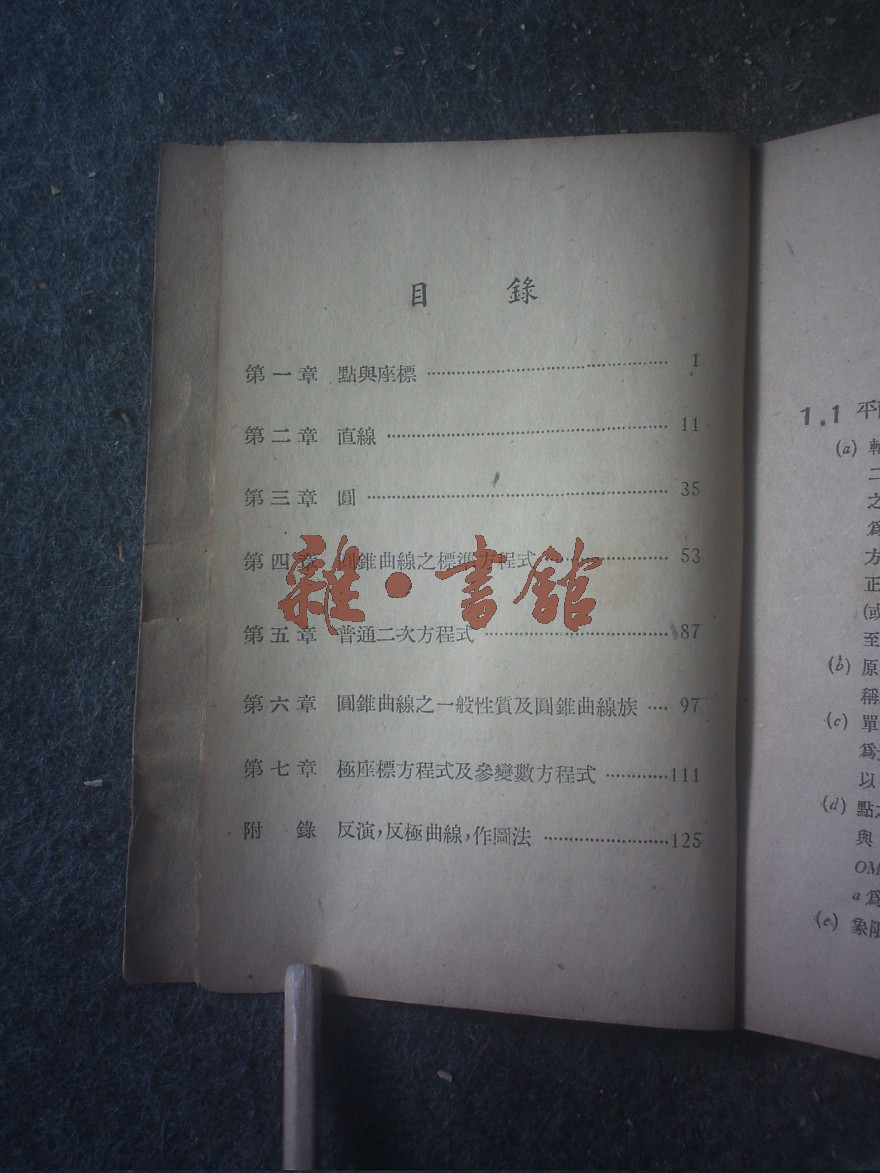 目 錄
第一章 點與座標 ………………………… 1
第二章 直線 ………………………… 11
第三章 圓 ………………………… 35
第四章 圓錐曲線之標準方程式 ………… 53
第五章 普通二次方程式 ………………… 87
第六章 圓錐曲線之一般性質及圓錐曲線族 …… 97
第七章 極座標方程式及參變數方程式 ………… 111
附 錄 反演,反極曲線,作圖法 ………………… 125
雜·書館
1.1 平
(a)
二
之
爲
方
正
(或
至
(b) 原
稱
(c) 單
爲
以
(d) 點
與
OM
a 爲
(e) 象限